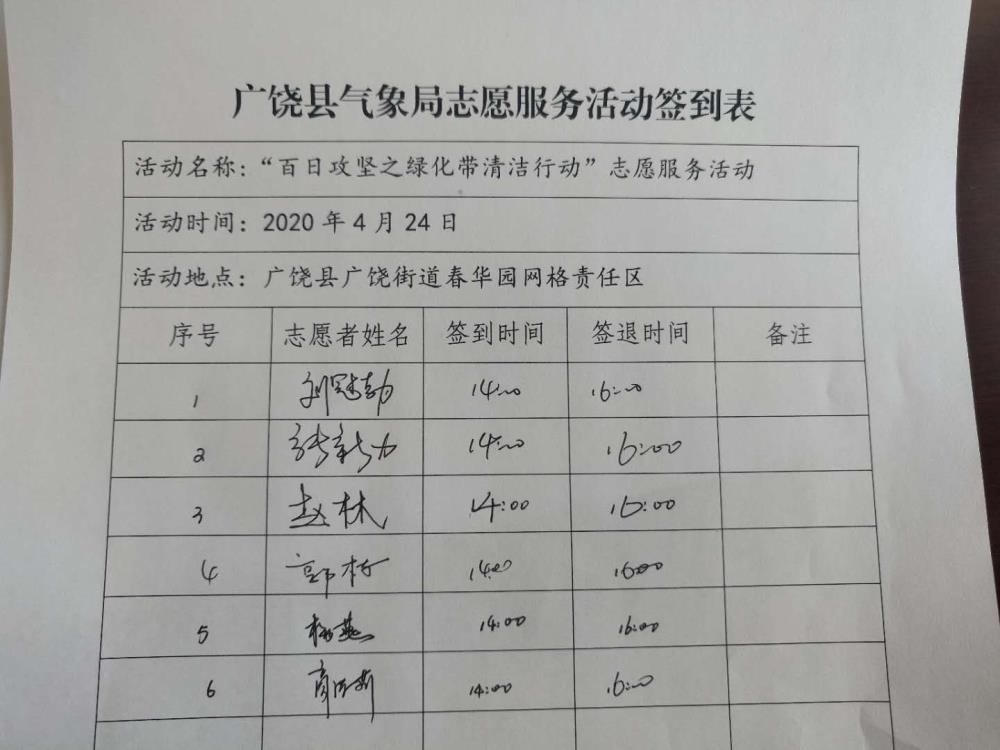 广饶县气象局志愿服务活动签到表
活动名称：“百日攻坚之绿化带清洁行动”志愿服务活动
活动时间：2020 年 4 月 24 日
活动地点：广饶县广饶街道春华园网格责任区
序号 志愿者姓名 签到时间 签退时间 备注
1 刘冠勃 14:00 16:00
2 张新力 14:00 16:00
3 赵林 14:00 16:00
4 郭栋 14:00 16:00
5 杨燕 14:00 16:00
6 14:00 16:00